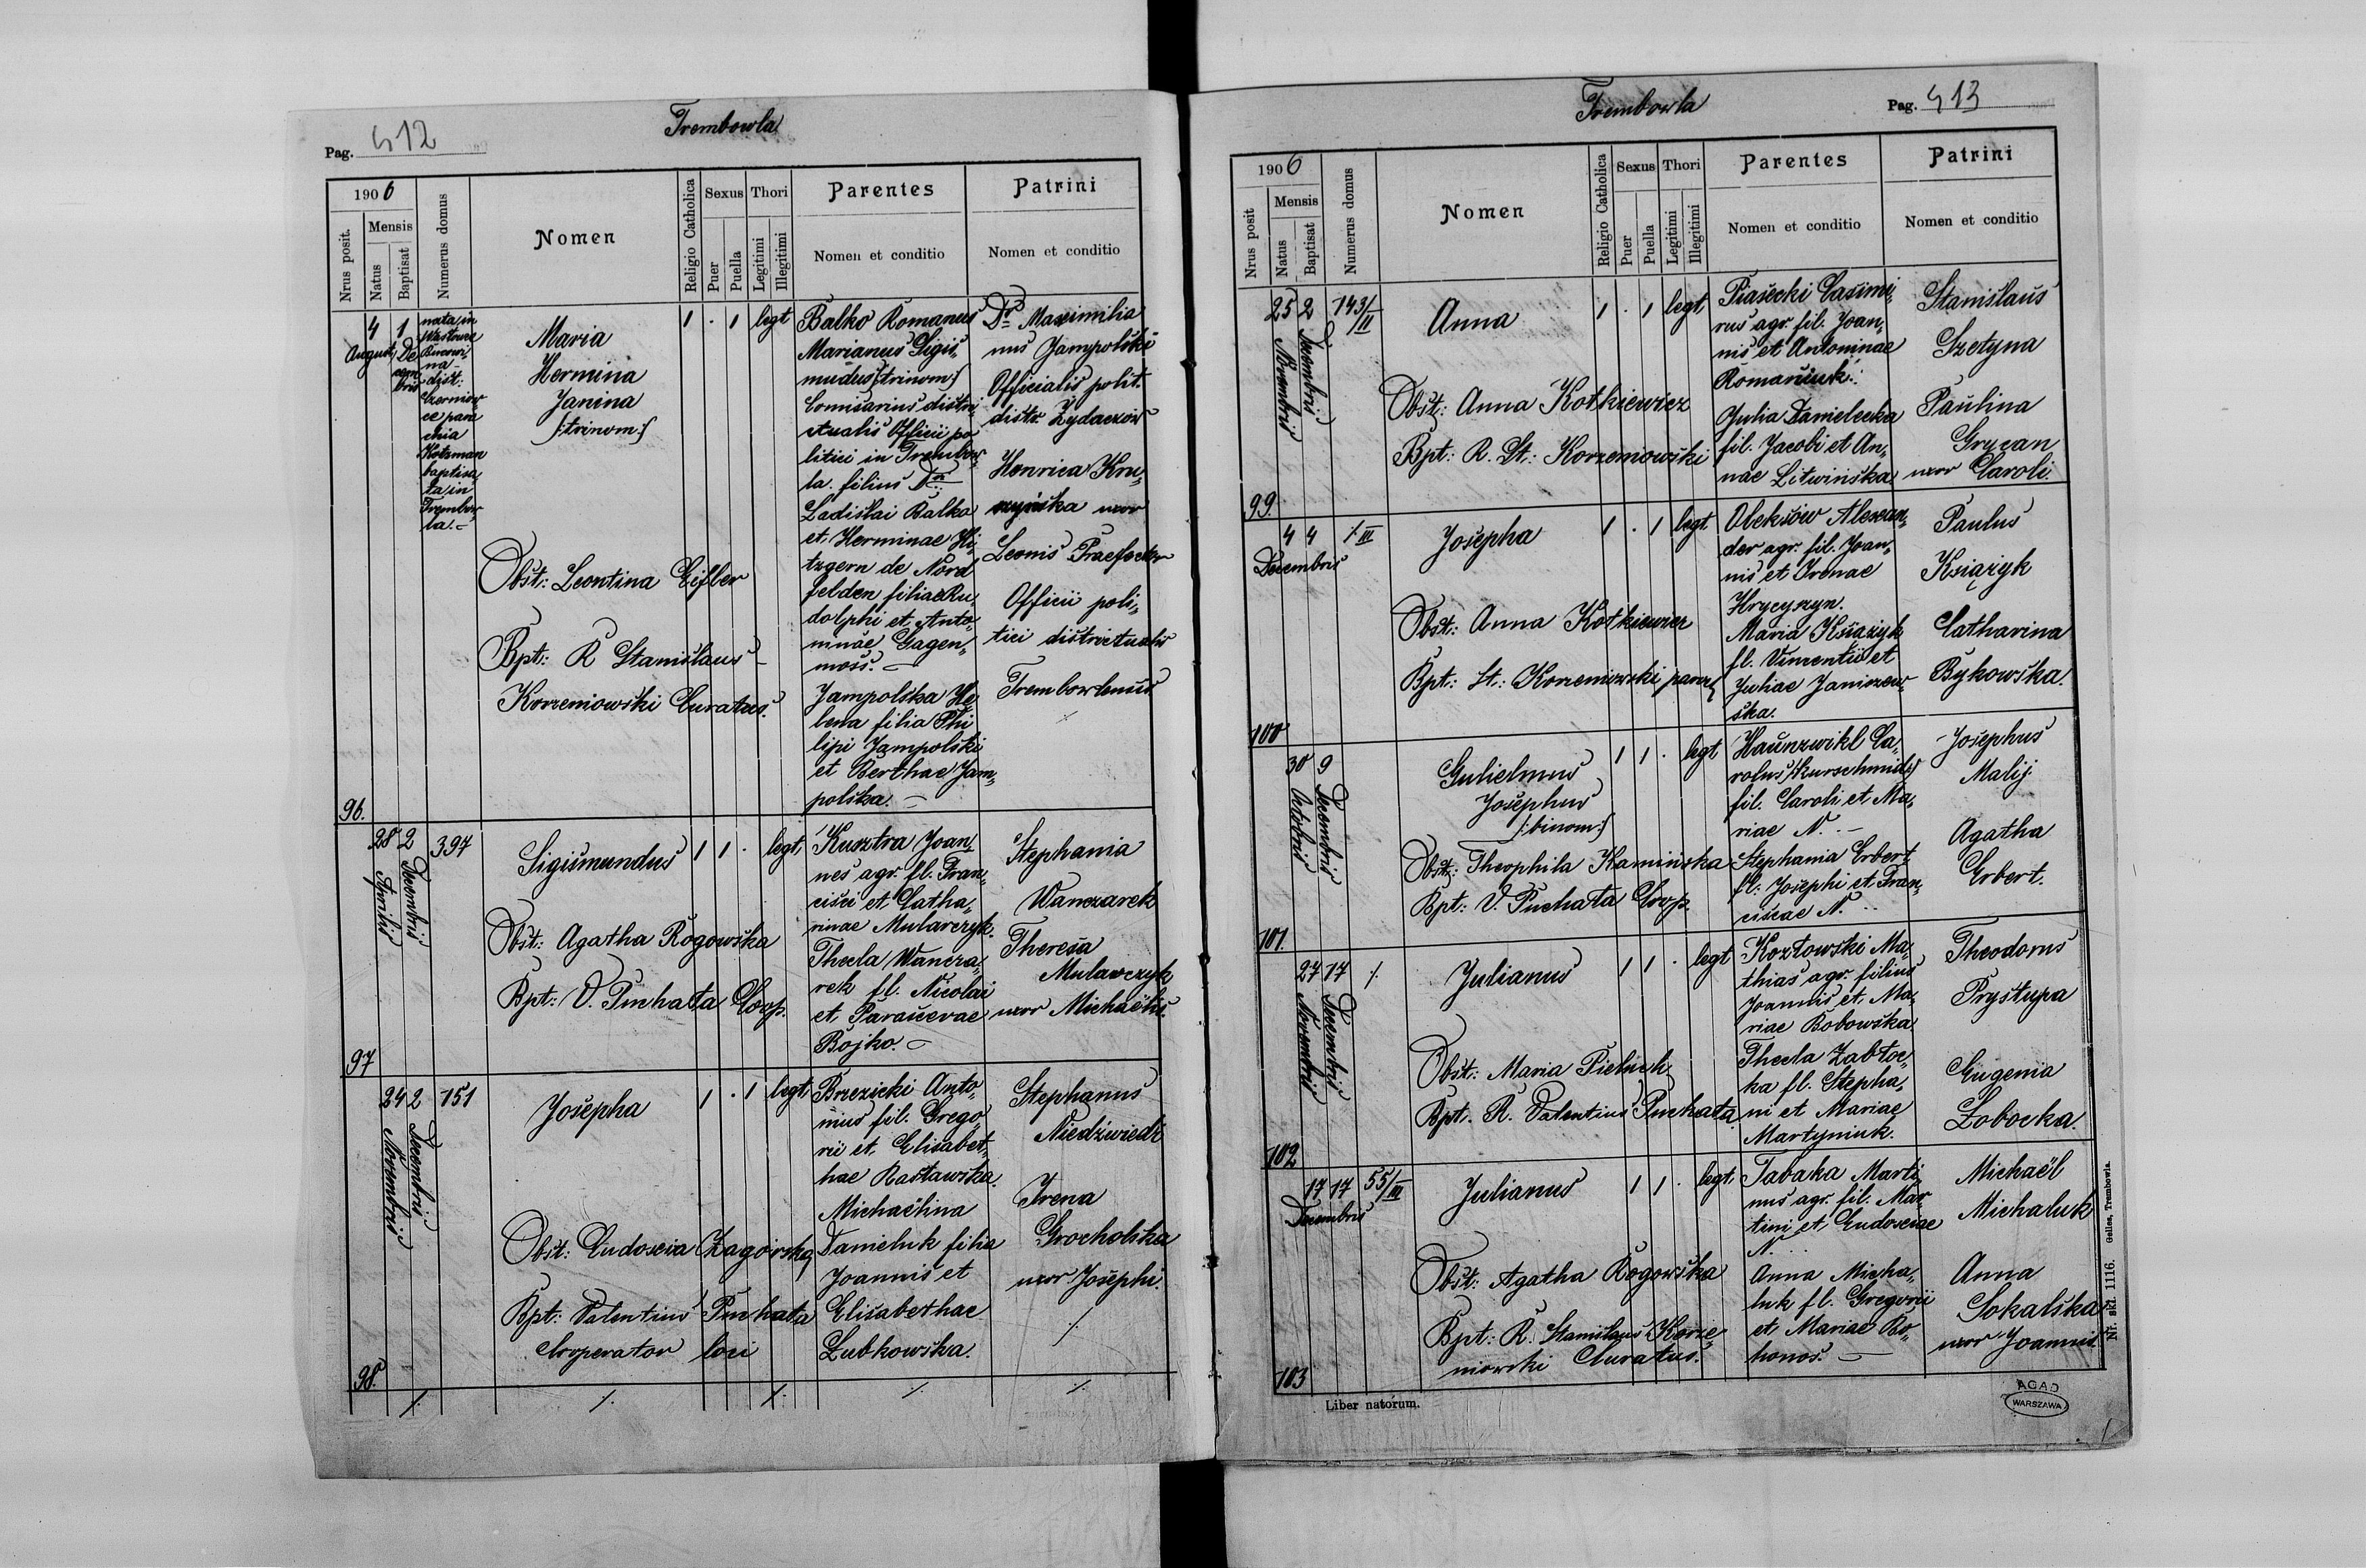 Pag. 412
Trembowla
1906
Nrus posit.
Mensis
Natus
Baptisat
Numerus domus
Nomen
Religio Catholica
Sexus
Puer
Puella
Thori
Legitimi
Illegitimi
Parentes
Nomen et conditio
Patrini
Nomen et conditio
96.
4
August
1
De
cem
bris
nata in
Bucowi
na
dist:
Czerniow
ce paro
chia
Kotzman
baptisa
ta in
Trembow
la.
Maria
Hermina
Janina
/:trinom:/
Obst: Leontina
Bpt: R Stanislaus
Korzeniowski Curatus.
1 . 1 legt
Balko Romanus
Marianus Sigis
mudus /:trinom:/
Comisarius distri
ctualis Officii po
litici in Trembow
la. filius Dri
Ladislai Balka
et Herminae Hi
tzgern de Nord
felden filiae Ru
dolphi et Anto
ninae Gagen
moss.
Jampolska He
lena filia Phi
lipi Jampolski
et Berthae Jam
polska.
Dr Maximilia
nus Jampolski
Officialis polit.
distr. Żydaczow
Henrica Kru
szyńska uxor
Leonis Praefecti
Officii poli
tici districtualis
Trembowlensis
97
28 Aprilis
2 Decembris
397
Sigismundus
Obst: Agatha Rogowska
Bpt: V. Puchata Coop.
1 1 . legt.
Kusztra Joan
nes agr. fl. Fran
cisci et Catha
rinae Mularczyk.
Thecla Wancza
rek fl. Nicolai
et Parascevae
Bojko.
Stephania
Wanczarek
Theresa
Mularczyk
uxor Michaëlis.
98.
24 Novembris
2 Decembris
151
Josepha
Obst: Eudoxia Zagórska
Bpt: Valentius Puchata
Cooperator loci
1 . 1 legt.
Brzezicki Anto
nius fil. Grego
rii et Elisabet
hae Rastawska.
Michaëlina
Danieluk filia
Joannis et
Elisabethae
Lubkowska.
Stephanus
Niedźwiedź
Irena
Grocholska
uxor Josephi.
Trembowla
Pag. 413
1906
Nrus posit
Mensis
Natus
Baptisat
Numerus domus
Nomen
Religio Catholica
Sexus
Puer
Puella
Thori
Legitimi
Illegitimi
Parentes
Nomen et conditio
Patrini
Nomen et conditio
99.
25 Novembris
2 Decembris
143/II
Anna
Obst: Anna Kotkiewicz
Bpt: R. St: Korzeniowski
1 . 1 legt.
Piasecki Casimi
rus agr. fil. Joan
nis et Antoninae
Romaniuk.
Julia Danielecka
fil. Jacobi et An
nae Litwinska
Stanislaus
Szetyna
Paulina
Grycan
uxor Caroli.
100
4 4
Decembris
1/III
Josepha
Obst: Anna Kotkiewicz
Bpt: St: Korzeniowski paroch
1 . 1 legt.
Oleksów Alexan
der agr. fil. Joan
nis et Irenae
Hrycyszyn.
Maria Książyk
fl. Vincentii et
Juliae Janiszew
ska.
Paulus
Książyk
Catharina
Bykowska.
101.
30 Octobris
9 Decembris
Gulielmus
Josephus
/:binom:/
Obst: Theophila Kamińska
Bpt: V. Puchata Coop.
1 1 . legt
Haunzwikl Ca
rolus /:kurschmid:/
fil. Caroli et Ma
riae N.
Stephania Erbert
fl: Josephi et Fran
ciscae N.
Josephus
Malij
Agatha
Erbert.
102
27 Novembris
17 Decembris
Julianus
Obst: Maria Pieluch
Bpt. R. Valentius Puchata
1 1 . legt
Kozłowski Ma
thias agr. filius
Joannis et Ma
riae Bobowska
Thecla Zabłoc
ka fl. Stepha
ni et Mariae
Martyniuk.
Theodorus
Prystupa
Eugenia
Łobocka.
103
17 17
Decembris
55/III
Julianus
Obst: Agatha Rogowska
Bpt: R. Stanislaus Korze
niowski Curatus.
1 1 . legt.
Tabaka Marti
nus agr. fil. Mar
tini et Eudoxiae
N.
Anna Micha
luk fl. Gregorii
et Mariae Bo
honos.
Michaël
Michaluk
Anna
Sokalska
uxor Joannis
Liber natorum.
Nr. skł. 1116. Gelles, Trembowla.
AGAD
WARSZAWA